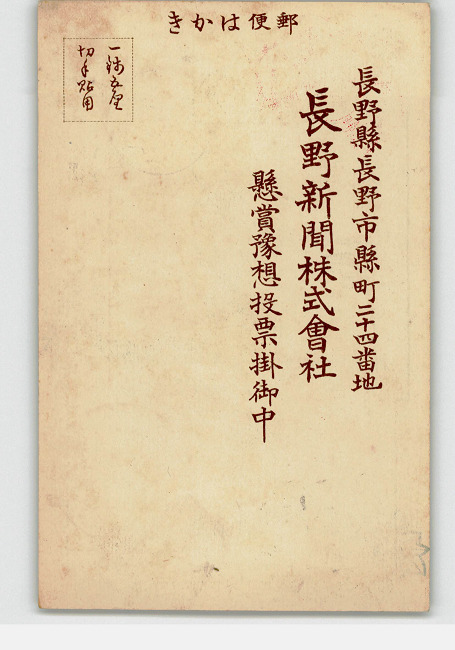 郵便はかき
長野縣長野市縣町二十四番地
長野新聞株式會社
懸賞豫想投票掛御中
一銭五厘
切手貼用